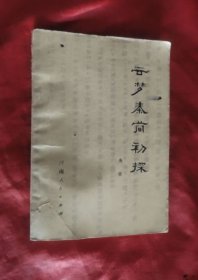 云梦秦简初探
高敏
河南人民出版社